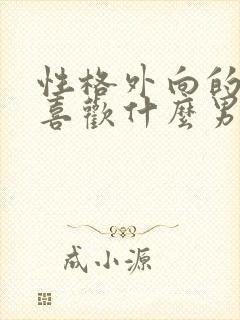 性格外向的
喜歡什麼男
成小源